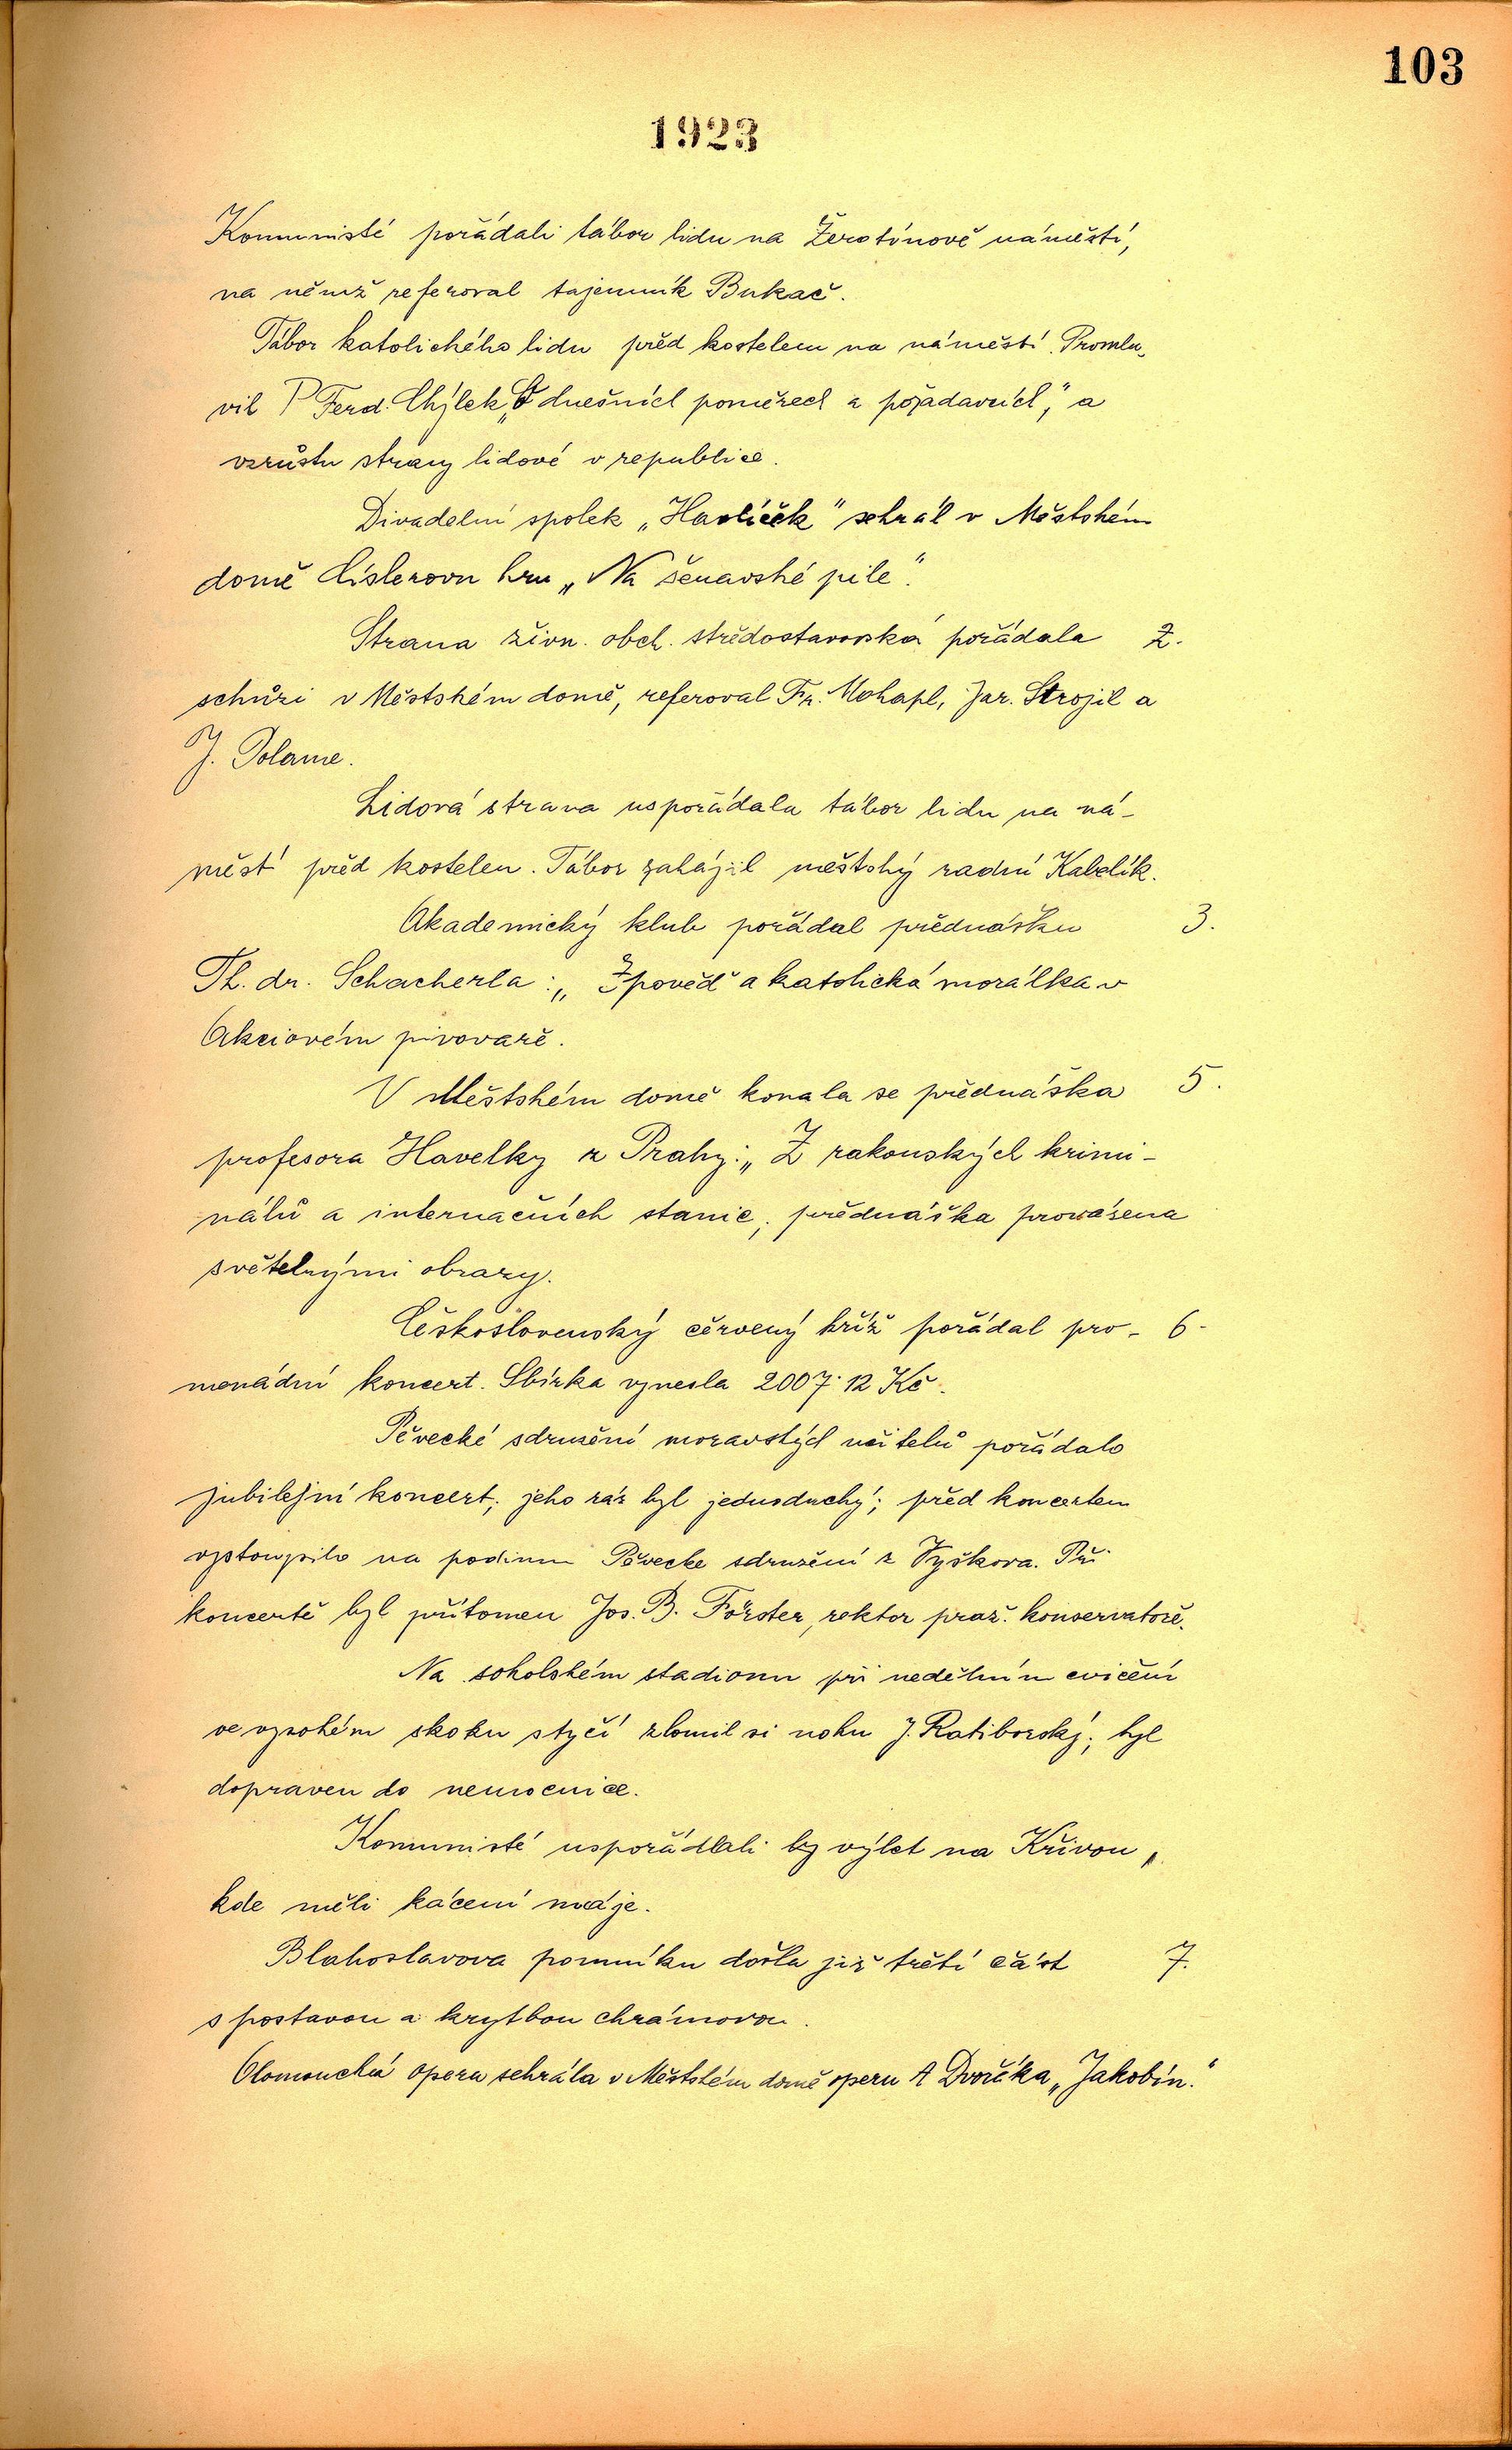 103
1923
Komunisté pořádali tábor lidu na Žerotínově náměstí,
na němž referoval tajemník Bukač.
Tábor katolického lidu před kostelem na náměstí. Promlu-
vil P Ferd. Chýlek „O dnešních poměrech a požadavcích," a
vzrůstu strany lidové v republice.
Divadelní spolek „Havlíček" sehrál v Městském
domě Císlerovu hru „Na šenavské pile".
Strana živn. obch. středostavovská pořádala 2.
schůzi v Městském domě, referoval Fr. Mohapl, Jar. Strojil a
J. Polame.
Lidová strana uspořádala tábor lidu na ná-
městí před kostelem. Tábor zahájil městský radní Kabelík.
Akademický klub pořádal přednášku 3.
Th. dr. Schacherla: „Zpověď a katolická morálka v
Akciovém pivovaře.
V Městském domě konala se přednáška 5.
profesora Havelky z Prahy: „Z rakouských krimi-
nálů a internačních stanic; přednáška provázena
světelnými obrazy.
Československý červený kříž pořádal pro- 6.
menádní koncert. Sbírka vynesla 2007·12 Kč.
Pěvecké sdružení moravských učitelů pořádalo
jubilejní koncert; jeho ráz byl jednoduchý; před koncertem
vystoupilo na podium Pěvecke sdružení z Vyškova. Při
koncertě byl přítomen Jos. B. Förster, rektor praž. konservatoře.
Na sokolském stadionu při nedělním cvičení
ve vysokém skoku styčí zlomil si nohu J. Ratiborský; byl
dopraven do nemocnice.
Komunisté uspořádali by výlet na Křivou,
kde měli kácení máje.
Blahoslavova pomníku došla již třetí část 7.
s postavou a krytbou chrámovou.
Olomoucká opera sehrála v Městském domě operu A Dvořáka „Jakobín."